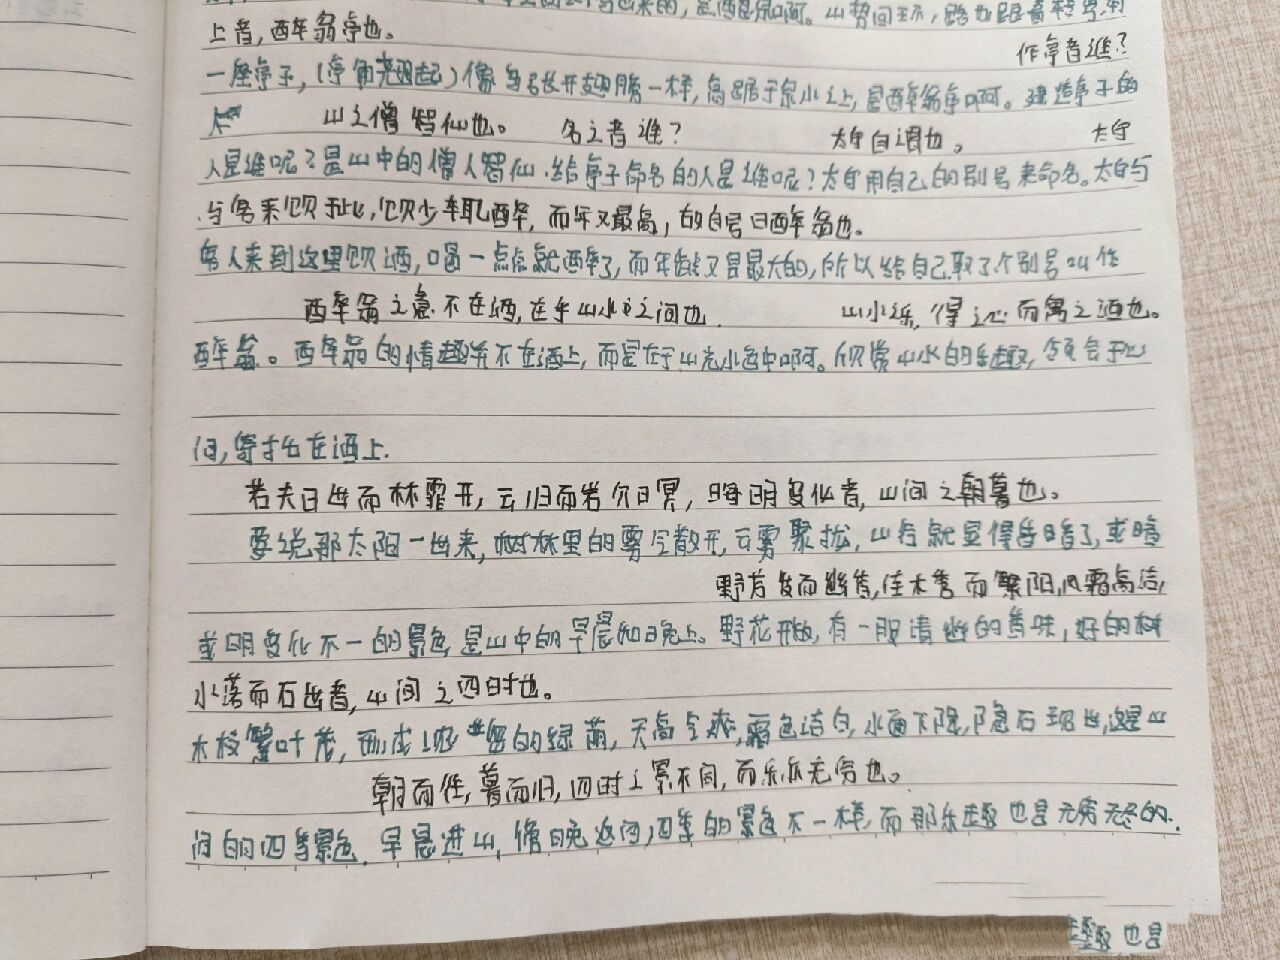 上者，醉翁亭也。
作亭者谁？
一座亭子，（亭角翘起）像鸟张开翅膀一样，高踞于泉水之上，是醉翁亭啊。建造亭子的
山之僧智仙也。 名之者谁？ 太守自谓也。 太守
人是谁呢？是山中的僧人智仙。给亭子命名的人是谁呢？太守用自己的别号来命名。太守与
与客来饮于此，饮少辄醉，而年又最高，故自号曰醉翁也。
客人来到这里饮酒，喝一点点就醉了，而年龄又是最大的，所以给自己取了个别号叫作
醉翁之意不在酒，在乎山水之间也。 山水之乐，得之心而寓之酒也。
醉翁。醉翁的情趣并不在酒上，而是在于山光水色中啊。欣赏山水的乐趣，领会于心
间，寄托在酒上.
若夫日出而林霏开，云归而岩穴暝，晦明变化者，山间之朝暮也。
要说那太阳一出来，树林里的雾气散开，云雾聚拢，山谷就显得昏暗了，或暗
野芳发而幽香，佳木秀而繁阴，风霜高洁，
或明变化不一的景色，是山中的早晨和晚上。野花开放，有一股清幽的香味，好的树
水落而石出者，山间之四时也。
木枝繁叶茂，形成浓密的绿荫，天高气爽，霜色洁白，水面下降，隐石现出，这是山
朝而往，暮而归，四时之景不同，而乐亦无穷也。
间的四季景色。早晨进山，傍晚返回，四季的景色不一样，而那乐趣也是无穷无尽的.
趣也是